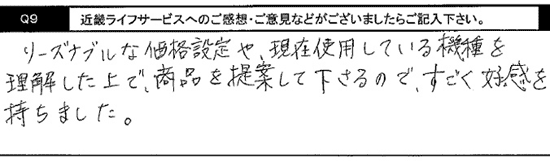 Q9 近畿ライフサービスへのご感想・ご意見などがございましたらご記入下さい。
リーズナブルな価格設定や、現在使用している機種を
理解した上で、商品を提案して下さるので、すごく好感を
持ちました。